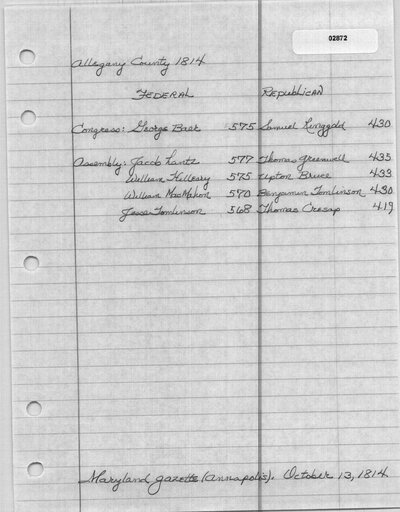 02872
Allegany County 1814
FEDERAL REPUBLICAN
Congress: George Baer 575 Samuel Ringgold 430
Assembly: Jacob Lantz 577 Thomas Greenwell 435
William Hilleary 575 Upton Bruce 433
William MacMahon 570 Benjamin Tomlinson 430
Jesse Tomlinson 568 Thomas Cresap 419
Maryland Gazette (Annapolis). October 13, 1814